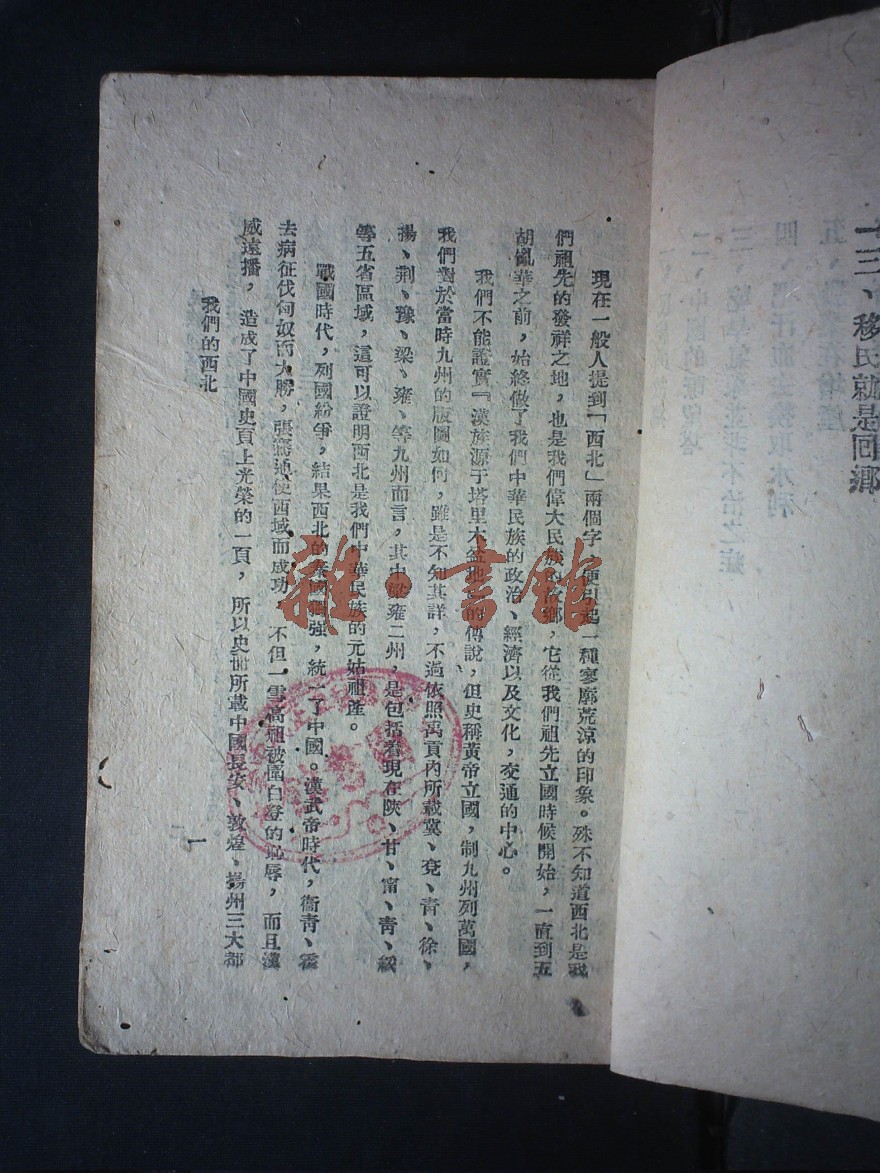 一三、移民就是回鄉
現在一般人提到「西北」兩個字，便引起一種寥廓荒涼的印象。殊不知道西北是我
們祖先的發祥之地，也是我們偉大民族的故鄉，它從我們祖先立國時候開始，一直到五
胡亂華之前，始終做了我們中華民族的政治、經濟以及文化，交通的中心。
我們不能證實『漢族源于塔里木盆地』的傳說，但史稱黃帝立國，制九州列萬國，
我們對於當時九州的版圖如何，雖是不知其詳，不過依照禹貢內所載冀、兗、青、徐、
揚、荆、豫、梁、雍、等九州而言，其中梁雍二州，是包括着現在陝、甘、甯、青、綏
等五省區域，這可以證明西北是我們中華民族的元始祖產。
戰國時代，列國紛爭，結果西北的秦國獨強，統一了中國。漢武帝時代，衞青、霍
去病征伐匈奴而大勝，張騫通使西域而成功，不但一雪高祖被圍白登的恥辱，而且漢
威遠播，造成了中國史頁上光榮的一頁，所以史册所載中國長安、敦煌、揚州三大都
我們的西北
一
雜·書館